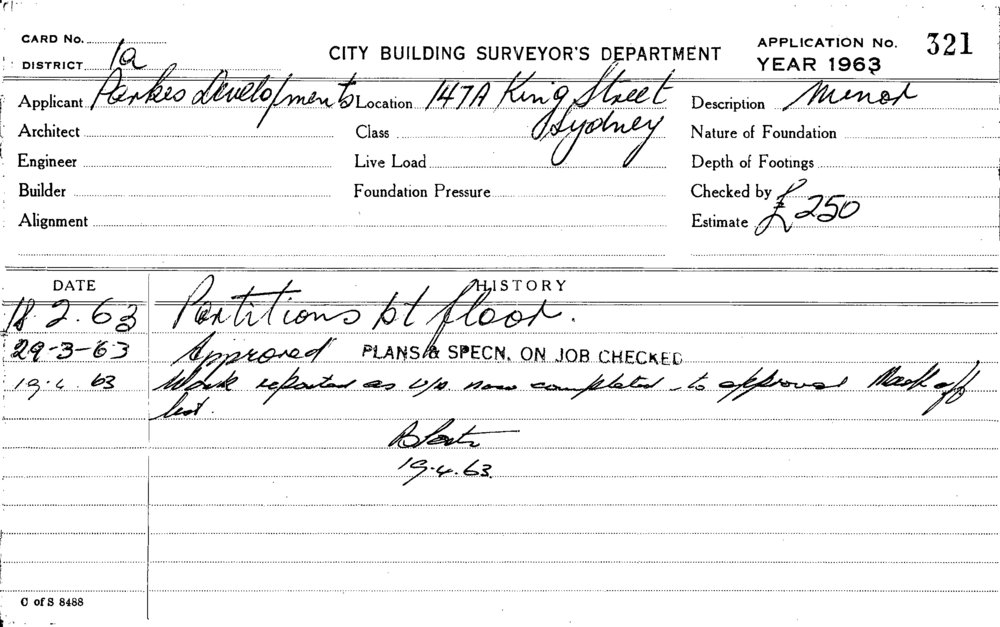 CARD No.
DISTRICT 1a
CITY BUILDING SURVEYOR'S DEPARTMENT
APPLICATION No. 321
YEAR 1963
Applicant Parkes Developments Location 147A King Street Description Minor
Sydney
Architect Class Nature of Foundation
Engineer Live Load Depth of Footings
Builder Foundation Pressure Checked by
Alignment Estimate £250
DATE HISTORY
18 2. 63 Partitions bt floor.
29-3-63 Approved PLANS & SPECN. ON JOB CHECKED
19. 4. 63 Work reported as now completed to approval Mark off
list.
19.4.63.
C of S 8488